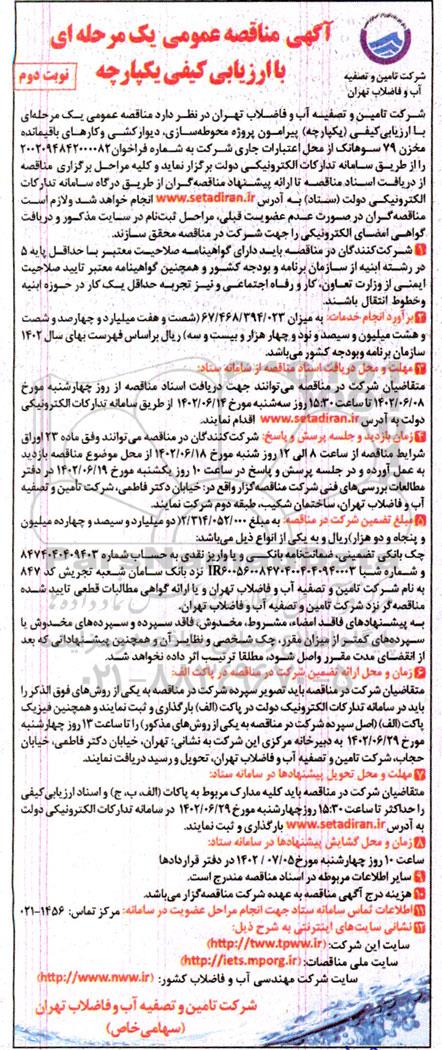 آگهی مناقصه عمومی یک مرحله ای
با ارزیابی کیفی یکپارچه
نوبت دوم
شرکت تامین و تصفیه
آب و فاضلاب تهران
شرکت تامین و تصفیه آب و فاضلاب تهران در نظر دارد مناقصه عمومی یک مرحله‌ای
با ارزیابی کیفی (یکپارچه) پیرامون پروژه محوطه‌سازی، دیوارکشی و کارهای باقیمانده
مخزن ۷۹ سوهانک از محل اعتبارات جاری شرکت به شماره فراخوان ۲۰۰۲۰۹۴۸۴۲۰۰۰۰۸۲
را از طریق سامانه تدارکات الکترونیکی دولت برگزار نماید و کلیه مراحل برگزاری مناقصه
از دریافت اسناد مناقصه تا ارائه پیشنهاد مناقصه‌گران از طریق درگاه سامانه تدارکات
الکترونیکی دولت (ستاد) به آدرس www.setadiran.ir انجام خواهد شد ولازم است
مناقصه‌گران در صورت عدم عضویت قبلی، مراحل ثبت‌نام در سایت مذکور و دریافت
گواهی امضای الکترونیکی را جهت شرکت در مناقصه محقق سازند.
۱ شرکت‌کنندگان در مناقصه باید دارای گواهینامه صلاحیت معتبر با حداقل پایه ۵
در رشته ابنیه از سازمان برنامه و بودجه کشور و همچنین گواهینامه معتبر تایید صلاحیت
ایمنی از وزارت تعاون، کار و رفاه اجتماعی و نیز تجربه حداقل یک کار در حوزه ابنیه
وخطوط انتقال باشند.
۲ برآورد انجام خدمات: به میزان ۶۷/۴۶۸/۳۹۴/۰۲۳ (شصت و هفت میلیارد و چهارصد و شصت
و هشت میلیون و سیصد و نود و چهار هزار و بیست و سه) ریال براساس فهرست بهای سال ۱۴۰۲
سازمان برنامه وبودجه کشور می‌باشد.
۳ مهلت و محل دریافت اسناد مناقصه از سامانه ستاد:
متقاضیان شرکت در مناقصه می‌توانند جهت دریافت اسناد مناقصه از روز چهارشنبه مورخ
۱۴۰۲/۰۶/۰۸ تا ساعت ۱۵:۳۰ روز سه‌شنبه مورخ ۱۴۰۲/۰۶/۱۴ از طریق سامانه تدارکات الکترونیکی
دولت به آدرس www.setadiran.ir اقدام نمایند.
۴ زمان بازدید و جلسه پرسش و پاسخ: شرکت‌کنندگان در مناقصه می‌توانند وفق ماده ۲۳ اوراق
شرایط مناقصه از ساعت ۸ الی ۱۲ روز شنبه مورخ ۱۴۰۲/۰۶/۱۸ از محل موضوع مناقصه بازدید
به عمل آورده و در جلسه پرسش و پاسخ در ساعت ۱۰ روز یکشنبه مورخ ۱۴۰۲/۰۶/۱۹ در دفتر
مطالعات بررسی‌های فنی شرکت مناقصه‌گزار واقع در: خیابان دکتر فاطمی، شرکت تأمین و تصفیه
آب و فاضلاب تهران، ساختمان شکیب، طبقه دوم شرکت نمایند.
۵ مبلغ تضمین شرکت در مناقصه: به مبلغ ۲/۳۱۴/۰۵۲/۰۰۰ (دو میلیارد و سیصد و چهارده میلیون
و پنجاه و دو هزار) ریال و به یکی از انواع ذیل می‌باشد:
چک بانکی تضمینی، ضمانت‌نامه بانکی و یا واریز نقدی به حساب شماره ۸۴۷۴۰۴۰۴۰۹۴۰۳
و شماره شبا نزد بانک سامان شعبه تجریش کد ۸۴۷
به نام شرکت تامین و تصفیه آب و فاضلاب تهران و یا ارائه گواهی مطالبات قطعی تایید شده
مناقصه‌گر نزد شرکت تامین و تصفیه آب و فاضلاب تهران.
به پیشنهادهای فاقد امضاء، مشروط، مخدوش، فاقد سپرده و سپرده‌های مخدوش یا
سپرده‌های کمتر از میزان مقرر، چک شخصی و نظایر آن و همچنین پیشنهاداتی که بعد
از انقضای مدت مقرر واصل شود، مطلقا ترتیب اثر داده نخواهد شد.
۶ زمان و محل ارائه تضمین شرکت در مناقصه در پاکت الف:
متقاضیان شرکت در مناقصه باید تصویر سپرده شرکت در مناقصه به یکی از روش‌های فوق الذکر را
باید در سامانه تدارکات الکترونیک دولت در پاکت (الف) بارگذاری و ثبت نمایند و همچنین فیزیک
پاکت (الف) (اصل سپرده شرکت در مناقصه به یکی از روش‌های مذکور) را تا ساعت ۱۳ روز چهارشنبه
مورخ ۱۴۰۲/۰۶/۲۹ به دبیرخانه مرکزی این شرکت به نشانی: تهران، خیابان دکتر فاطمی، خیابان
حجاب، شرکت تامین و تصفیه آب و فاضلاب تهران، تحویل و رسید دریافت نمایند.
۷ مهلت و محل تحویل پیشنهادها در سامانه ستاد:
متقاضیان شرکت در مناقصه باید کلیه مدارک مربوط به پاکات (الف، ب، ج) و اسناد ارزیابی کیفی
را حداکثر تا ساعت ۱۵:۳۰ روز چهارشنبه مورخ ۱۴۰۲/۰۶/۲۹ در سامانه تدارکات الکترونیکی دولت
به آدرس www.setadiran.ir بارگذاری و ثبت نمایند.
۸ زمان و محل گشایش پیشنهادها در سامانه ستاد:
ساعت ۱۰ روز چهارشنبه مورخ ۱۴۰۲ / ۰۷/۰۵ در دفتر قراردادها
۹ سایر اطلاعات مربوطه در اسناد مناقصه مندرج است.
۱۰ هزینه درج آگهی مناقصه به عهده شرکت مناقصه‌گزار می‌باشد.
۱۱ اطلاعات تماس سامانه ستاد جهت انجام مراحل عضویت در سامانه: مرکز تماس: ۱۴۵۶-۰۲۱
۱۲ نشانی سایت‌های اینترنتی به شرح ذیل:
سایت این شرکت: (http://tww.tpww.ir)
سایت ملی مناقصات: (http://iets.mporg.ir)
سایت شرکت مهندسی آب و فاضلاب کشور: (http://www.nww.ir)
شرکت تامین و تصفیه آب و فاضلاب تهران
(سهامی خاص)